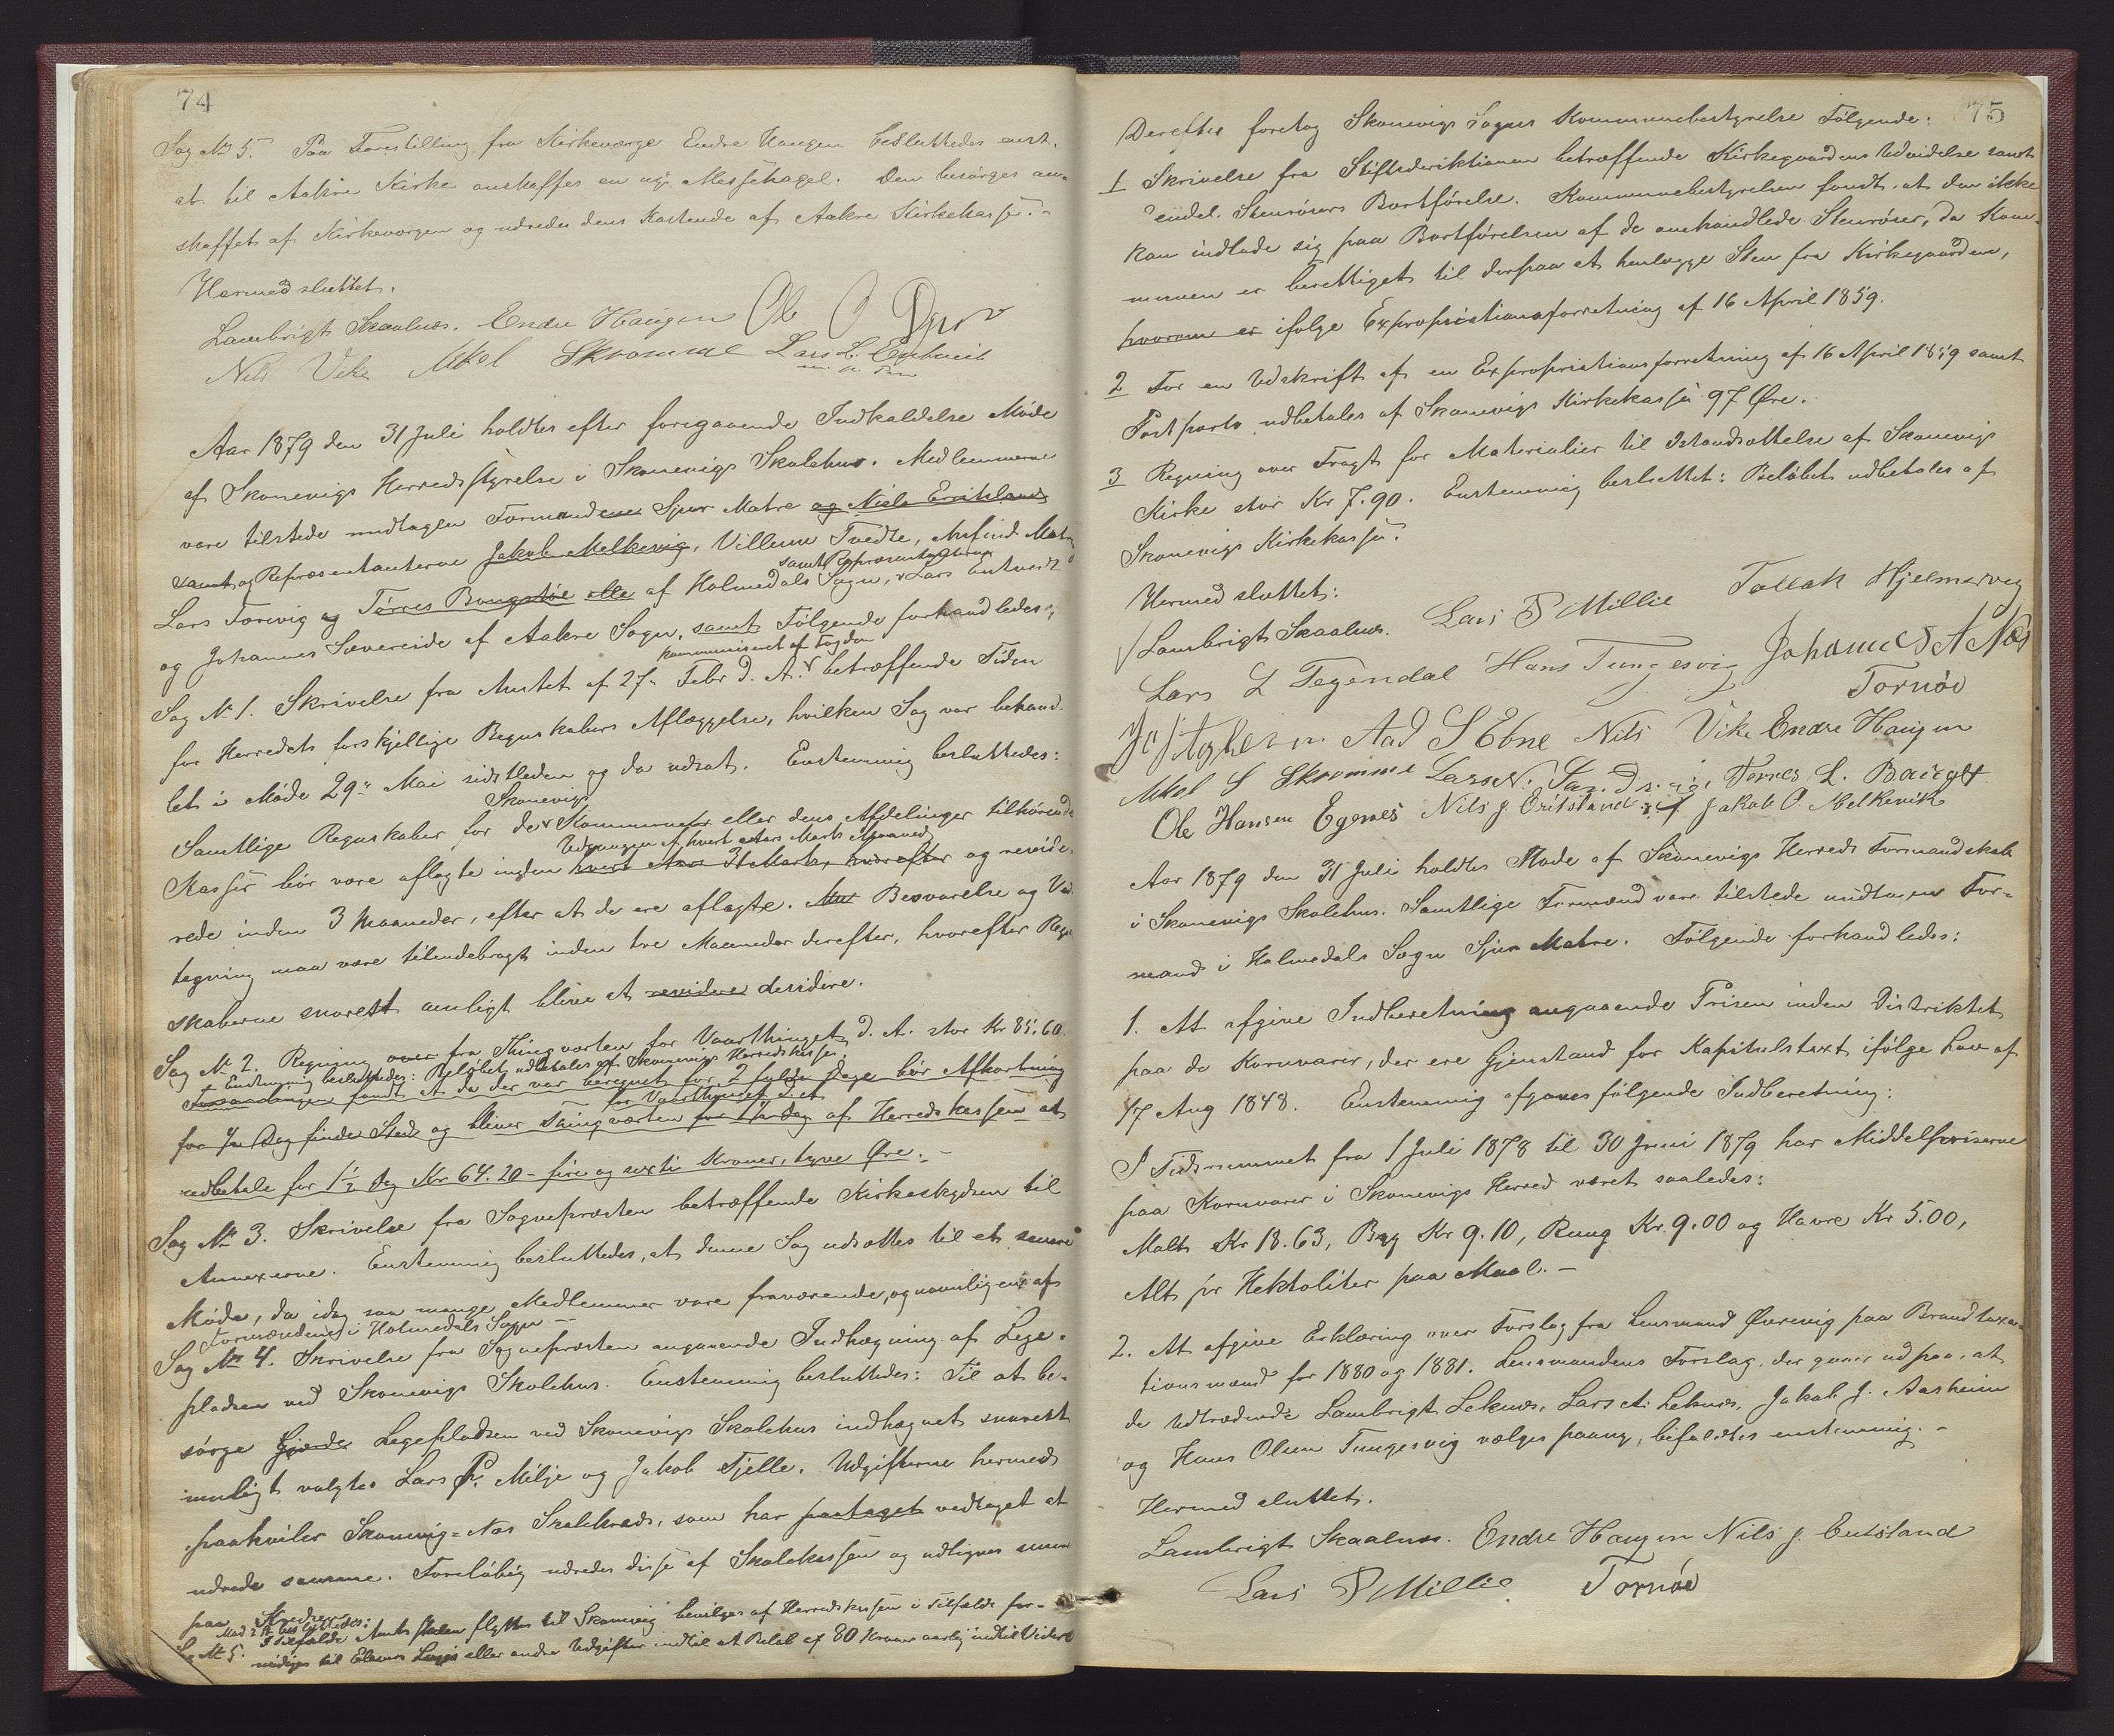 74
Sag No 5. Paa Forestilling fra Kirkeværge Endre Haugen besluttedes enst.
at til Aakre Kirke anskaffes en ny Messehagel. Den besørges an-
skaffet af Kirkeværgen og udredes dens Kostende af Aakre Kirkekasse.-
Hermed sluttet.
Lambrigt Skaalnes. Endre Haugen Ole O
Nils Vike Mkel Skromme Lars L.
Aar 1879 den 31 Juli holdtes efter foregaaende Indkaldelse Møde
af Skonevigs Herredsstyrelse i Skonevigs Skolehus. Medlemmerne
vare tilstede undtagen Formændene Sjur Matre og Niels Eritsland
samt og Repræsentanterne Jakob Melkevig, Villum Tvedte, Anfind Matre
samt Repræsentanterne
Lars Torevig og Tørres Baugstøl alle af Holmedals Sogn, Lars Entveit
og Johannes Sævereide af Aakre Sogn, samt Følgende forhandledes:
kommuniseret af Fogden
Sag No 1. Skrivelse fra Amtet af 27. Febr d. A. betræffende Tiden
for Herredets forskjellige Regnskabers Aflæggelse, hvilken Sag var behand-
let i Møde 29de Mai sidstleden og da udsat. Enstemmig besluttedes:
Skonevigs
Samtlige Regnskaber for de Kommuner eller dens Afdelinger tilhørende
Udgangen af hvert Aars Marts Maaned
Kasser bør være aflagte inden hvert Aars 31 Marts, hvorefter og revide-
rede inden 3 Maaneder, efter at de ere aflagte. Besvarelse og
tegning maa være tilendebragt inden tre Maaneder derefter, hvorefter Regn-
skaberne snarest muligt blive at revidere desidere.
Sag No 2. Regning over fra Thingværten for Vaarthinget d. A. stor Kr 85.60.
Enstemmig besluttedes: Beløbet udbetales af Skonevigs Herredskasse.
Forsamlingen fandt, at da der var beregnet for 2 fulde Dage bør Afkortning
for Vaarthinget d. A.
for ½ Dag finde Sted og bliver Tingværten for 1½ Dag af Herredskassen at
udbetale for 1½ Dag Kr. 64.20 - fire og sexti Kroner, tyve Øre.-
Sag No 3. Skrivelse fra Sognepræsten betræffende Kirkeskydsen til
Annexerne. Enstemmig besluttedes, at denne Sag udsættes til et senere
Møde, da idag saa mange Medlemmer vare fraværende, og navnligen af
Formændene i Holmedals Sogn -
Sag No 4. Skrivelse fra Sognepræsten angaaende Indhegning af Lege-
pladsen ved Skonevigs Skolehus. Enstemmig besluttedes: Til at be-
sørge Gjærde Legepladsen ved Skonevigs Skolehus indhægnet snarest
muligt valgtes Lars P. Milje og Jakob Fjelle. Udgifterne hermed
paahviler Skonevig-Næs Skolekreds, som har paataget vedtaget at
udrede samme. Foreløbig udredes disse af Skolekassen og udlignes senere
paa Kredsen.
Sag No 5. I Tilfælde Amtsskolen flyttes til Skonevig bevilges af Herredskassen i Tilfælde for-
nødiges til Elevers Logis eller andre Udgifter indtil et Beløb af 80 Kroner aarlig indtil Videre
75
Derefter foretog Skonevigs Sogns Kommunebestyrelse Følgende:
1 Skrivelse fra Stiftsdirektionen betræffende Kirkegaardens Udvidelse samt
endel Stenrøsers Bortførelse. Kommunebestyrelsen fandt, at den ikke
kan indlade sig paa Bortførelsen af de omhandlede Stenrøser, da Kom-
munen er berettiget til derpaa at henlægge Sten fra Kirkegaarden,
hvorom er ifølge Expropriationsforretning af 16 April 1859.
2 For en Udskrift af en Expropriationsforretning af 16 April 1859 samt
Postporto udbetales af Skonevigs Kirkekasse 97 Øre.
3 Regning over Fragt for Materialier til Istandsættelse af Skonevigs
Kirke stor Kr 7.90. Enstemmig besluttet: Beløbet udbetales af
Skonevigs Kirkekasse.
Hermed sluttet:
Lambrigt Skaalnes. Lars P Millie Tollak Hjelmervig
Lars L Tegendal Hans Tungesvig Johannes A Næs
Tornøe
Aad S Ebne Nils Vike Endre Haugen
Mkel S Skromme Lars N. Tørres L. Baugst
Ole Hansen Egenes Nils J. Eritsland Jakob O. Melkevik
Aar 1879 den 31 Juli holdtes Møde af Skonevigs Herreds Formandskab
i Skonevigs Skolehus. Samtlige Formænd vare tilstede undtagen For-
mand i Holmedals Sogn Sjur Matre. Følgende forhandledes:
1. At afgive Indberetning angaaende Prisen inden Distriktet
paa de Kornvarer, der ere Gjenstand for Kapitelstaxt ifølge Lov af
17 Aug 1848. Enstemmig afgaves følgende Indberetning:
I Tidsrummet fra 1 Juli 1878 til 30 Juni 1879 har Middelpriserne
paa Kornvarer i Skonevigs Herred været saaledes:
Malt Kr 18.63, Byg Kr 9.10, Rug Kr. 9.00 og Havre Kr 5.00,
Alt pr Hektoliter paa Maal.-
2. At afgive Erklæring over Forslag fra Lensmand Øvrevig paa Brandtaxa-
tionsmænd for 1880 og 1881. Lensmandens Forslag, der gaaer ud paa, at
de Udtrædende Lambrigt Leknes, Lars A. Leknes, Jakob J. Aarheim
og Hans Olsen Tungesvig vælges paany, bifaldtes enstemmig.-
Hermed sluttet.
Lambrigt Skaalnes. Endre Haugen Nils J. Eritsland
Lars P Millie Tornøe